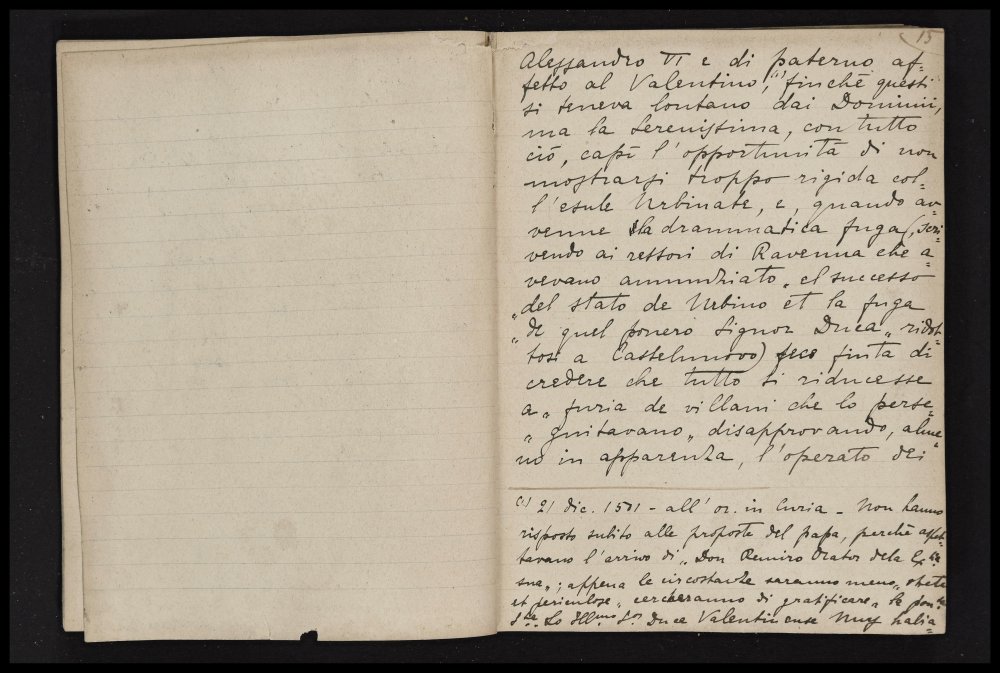 15
Alessandro VI e di paterno af=
fetto al Valentino,(1) finchè questi
si teneva lontano dai Dominii,
ma la Serenissima, con tutto
ciò, capì l'opportunità di non
mostrarsi troppo rigida col=
l'esule Urbinate, e, quando av=
venne la drammatica fuga (scri=
vendo ai rettori di Ravenna che a=
vevano annunziato „el successo
„del stato de Urbino et la fuga
„de quel povero Signor Duca„ ridot=
tosi a Castelnuovo) fece finta di
credere che tutto si riducesse
a „furia de villani che lo perse=
„guitavano„ disapprovando, alme=
no in apparenza, l'operato dei
(1) 21 dic. 1501 - all'or. in Curia - Non hanno
risposto subito alle proposte del papa, perchè aspet=
tavano l'arrivo di „Don Remiro Orator dela
sua„; appena le circostanze saranno meno „
et periculose„ cercheranno di gratificare „la
Lo Ill.mo S.or Duca Valentinense